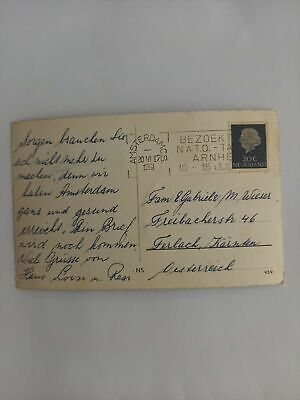 Sorgen brauchen Sie
sich nicht mehr zu
machen, denn wir
haben Amsterdam
ganz und gesund
erreicht. Den Brief
wird noch kommen
Viel Grüsse von
Hans, u.
AMSTERDAM
BEZOEK
N.A.T.O.-TA
ARNHE
10-15 JU
20 C
NEDERLAND
Fam. E. Gabriele/M. Wieser
Freibacherstr 46
Ferlach, Kärnten
Oesterreich
NS